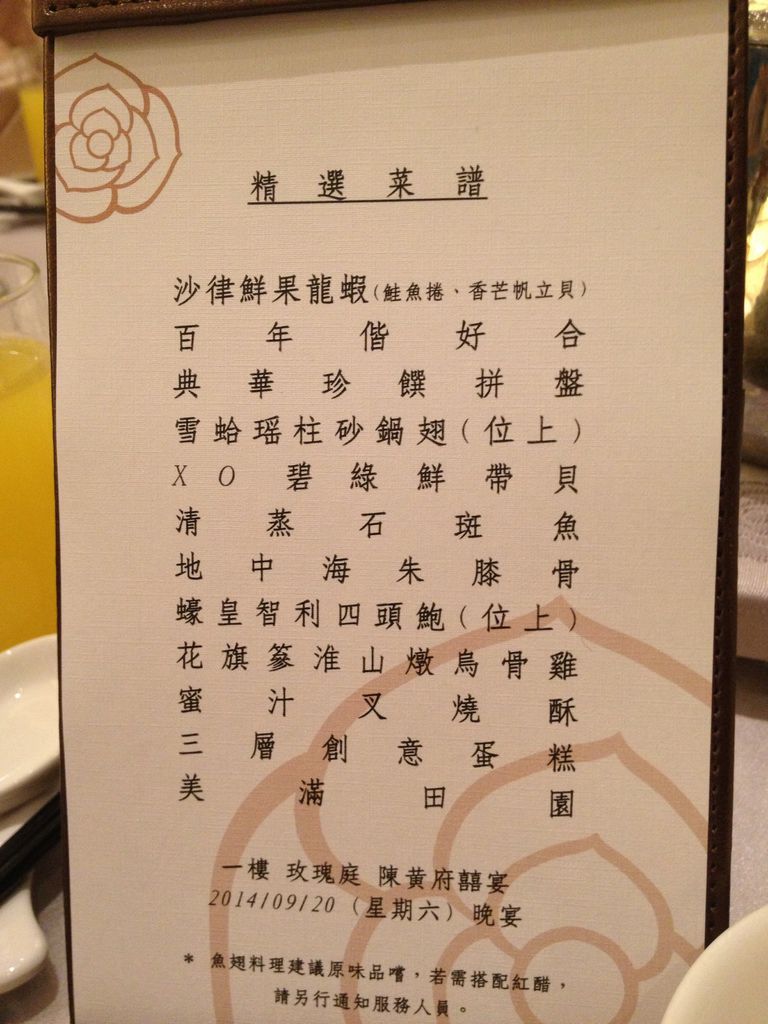 精選菜譜
沙律鮮果龍蝦(鮭魚捲、香芒帆立貝)
百年偕好合
典華珍饌拼盤
雪蛤瑶柱砂鍋翅(位上)
XO碧綠鮮帶貝
清蒸石斑魚
地中海朱膝骨
蠔皇智利四頭鮑(位上)
花旗蔘淮山燉烏骨雞
蜜汁叉燒酥
三層創意蛋糕
美滿田園
一樓 玫瑰庭 陳黃府囍宴
2014/09/20 (星期六) 晚宴
* 魚翅料理建議原味品嚐，若需搭配紅醋，
請另行通知服務人員。